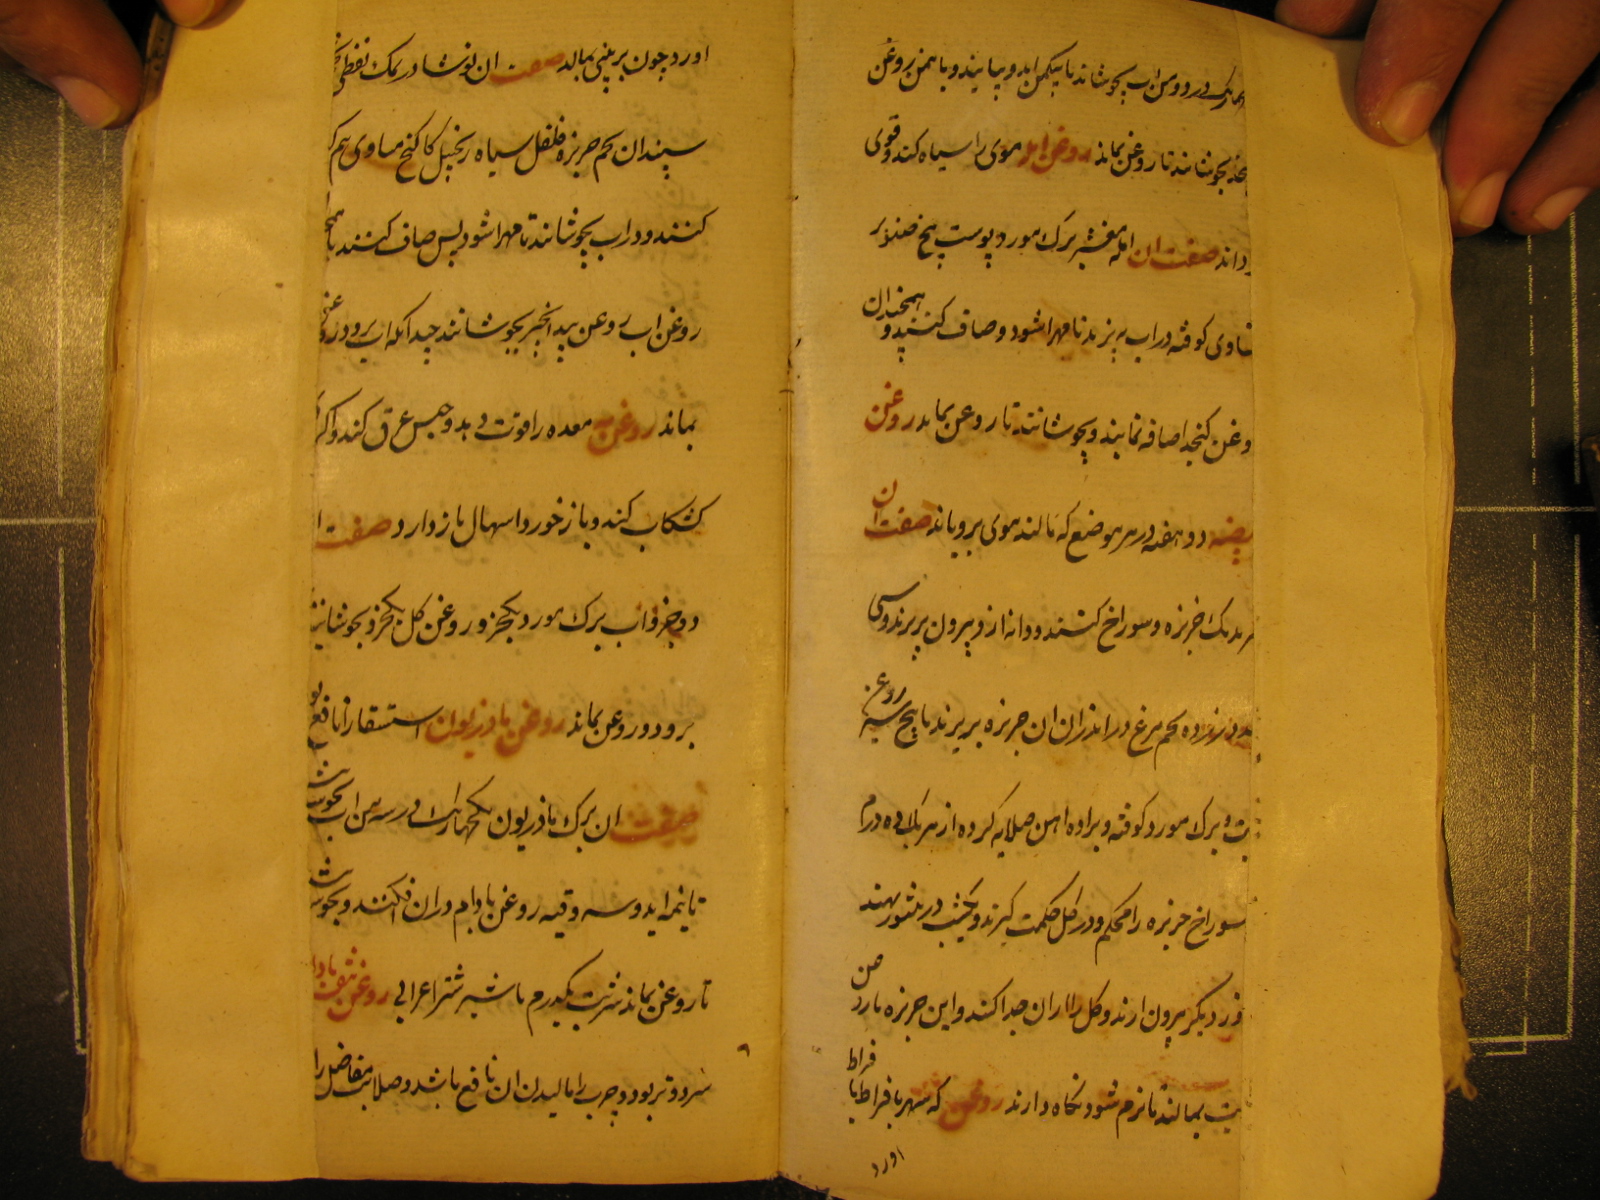 در دو من اب بجوشانند تا بیکمن اید و بپایند و با همن روغن
بجوشانند تا روغن بماند روغن املہ موی را سیاه کند و قوی
صفت ان املہ برک مورد پوست بیخ صنوبر
کوفته در اب به پزند تا مهرا شود و صاف کنند و همچندان
روغن کنجد اضافه نمایند و بجوشانند تا روغن بماند روغن
بیضه دو هفته در هر موضع که مالند موی برویاند صفت ان
یک خربزه و سوراخ کنند و دانه از و بیرون بریزند و سی
زرده تخم مرغ در اندران ان خربزه بریزند با پنج سیر روغن
و برک مورد کوفته و براده اهن صلایه کرده از هر یک ده درم
سوراخ خربزه را محکم و در کل حکمت کیرند و یکشب در تنور نهند
روز دیکر بیرون ارند و کل را ازان جدا کنند و این خربزه با
بمالند تا نرم شود نکاه دارند روغن که سهر با فراط
اورد
اورد چون بر بینی بمالد صفت ان نوشادر نمک نفطی
سپندان تخم خربزه فلفل سیاه زنجبیل کاکنج مساوی هم
کنند و در اب بجوشانند تا مهرا شود پس صاف کنند
روغن اب روغن بید انجیر بجوشانند چندانکه اب برود روغن
بماند روغن به معده را قوت دهد و حبس عرق کند و اکر
کشکاب کند و باز خورد اسهال باز دارد صفت
دو جزو اب برک مورد یکجزو روغن کل یکجزو بجوشانند
برود و روغن بماند روغن ماذریون استسقا را نافع بو
صفت ان برک ماذریون یکچهاریک در سه من اب بجوشانند
تا نیمه اید و سه وقیه روغن بادام دران افکنند و بجوشانند
تا روغن بماند شربت یکدرم با شیر شتر اعرابی روغن
سرد و تر بود و جرب را مالیدن ان نافع باشد و صلابت مفاصل را